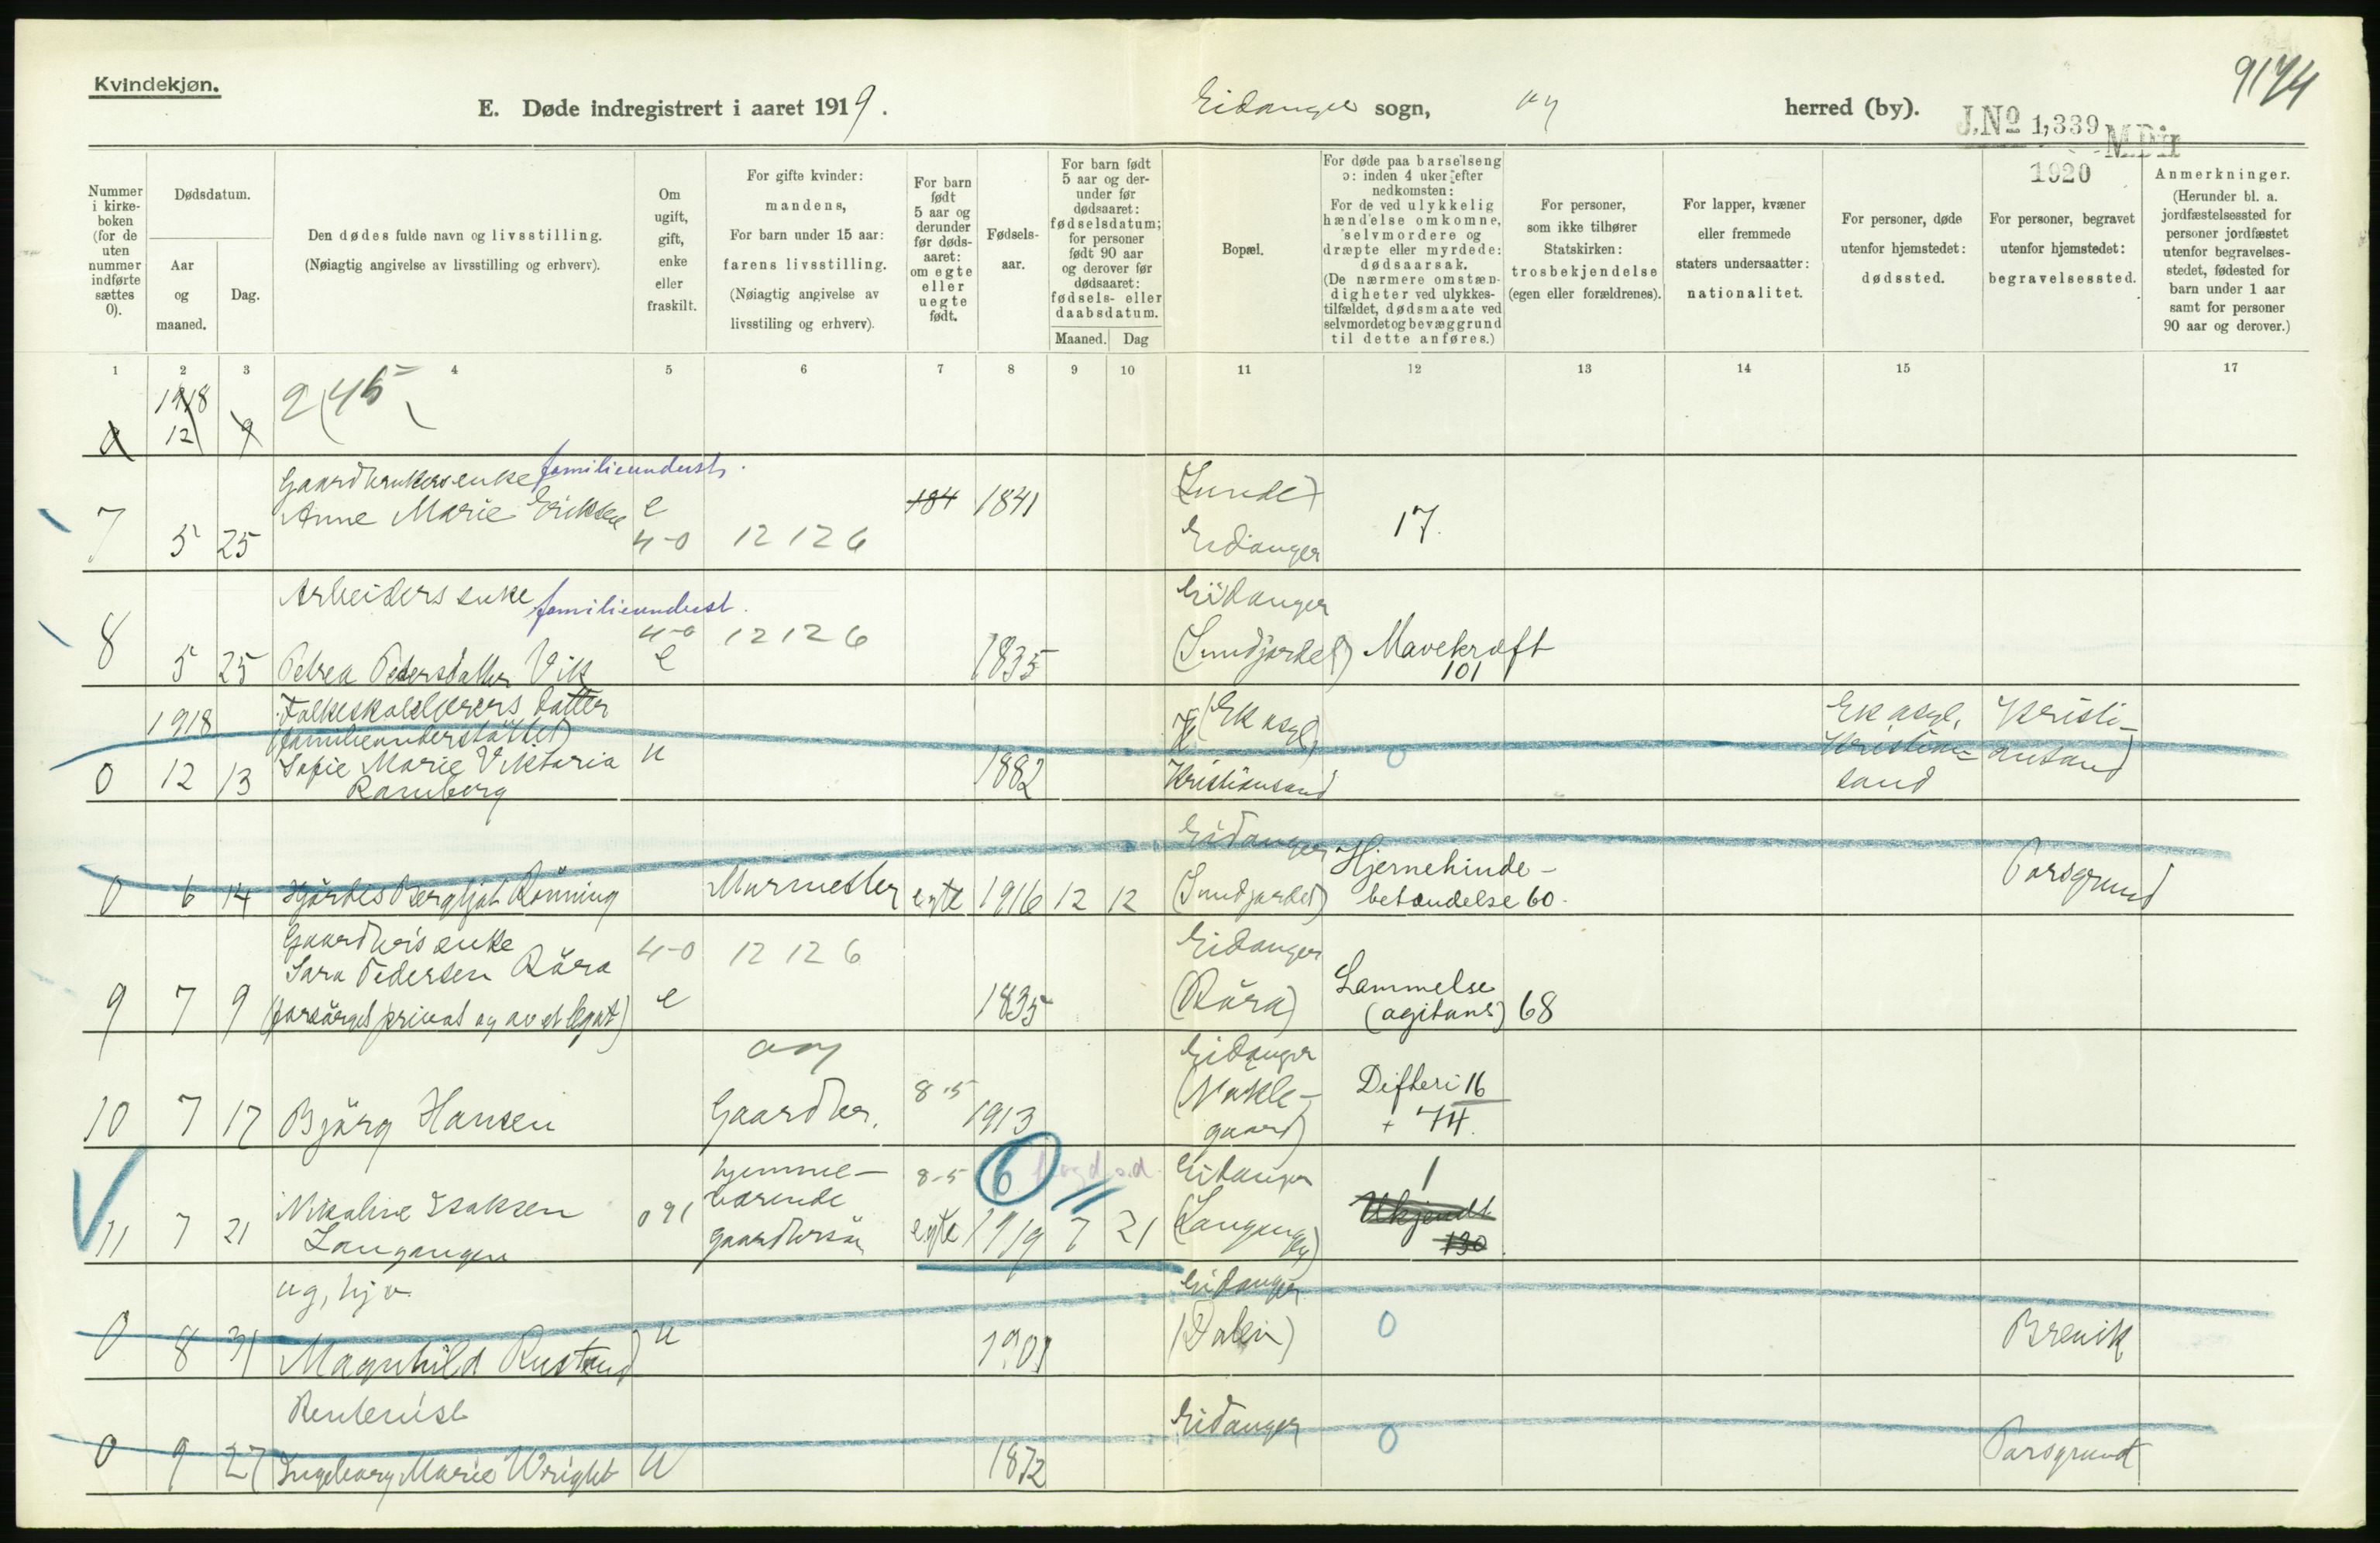 Kvindekjøn.
9174
E. Døde indregistrert i aaret 1919.
Eidanger sogn,
herred (by).
J.No 1,339 M.Dir
1920
Nummer i kirkeboken (for de uten nummer indførte sættes 0).
Dødsdatum.
Aar og maaned.
Dag.
Den dødes fulde navn og livsstilling.
(Nøiagtig angivelse av livsstilling og erhverv).
Om ugift, gift, enke eller fraskilt.
For gifte kvinder: mandens,
For barn under 15 aar: farens livsstilling.
(Nøiagtig angivelse av livsstiling og erhverv).
For barn født 5 aar og derunder før dødsaaret: om egte eller uegte født.
Fødselsaar.
For barn født 5 aar og derunder før dødsaaret: fødselsdatum; for personer født 90 aar og derover før dødsaaret: fødsels- eller daabsdatum.
Maaned. Dag
Bopæl.
For døde paa barselseng ɔ: inden 4 uker efter nedkomsten:
For de ved ulykkelig hændelse omkomne, selvmordere og dræpte eller myrdede: dødsaarsak.
(De nærmere omstændigheter ved ulykkestilfældet, dødsmaate ved selvmordet og bevæggrund til dette anføres.)
For personer, som ikke tilhører Statskirken: trosbekjendelse (egen eller forældrenes).
For lapper, kvæner eller fremmede staters undersaatter: nationalitet.
For personer, døde utenfor hjemstedet: dødssted.
For personer, begravet utenfor hjemstedet: begravelsessted.
Anmerkninger.
(Herunder bl. a. jordfæstelsessted for personer jordfæstet utenfor begravelsesstedet, fødested for barn under 1 aar samt for personer 90 aar og derover.)
1 2 3 4 5 6 7 8 9 10 11 12 13 14 15 17
1918
0 12 9
245
Gaardbrukersenke familieunderst.
7 5 25 Anne Marie Eriksen e 4-0 12 12 6 184 1841 (Lunde) Eidanger 17.
Arbeiders enke familieunderst.
8 5 25 Petrea Pedersdatter Vik 4-0 e 12 12 6 1835 Eidanger (Sundjordet) Mavekræft 101
1918 Folkeskolelærers datter
(familieunderstøttet)
0 12 13 Sofie Marie Viktoria Ramberg u 1882 (Ek asyl) Kristiansand 0 Ek asyl, Kristiansand Kristiansand
0 6 14 Hjördes Bergljot Rönning Murmester egte 1916 12 12 Eidanger (Sundjordet) Hjernehindebetændelse 60. Porsgrund
Gaardbr's enke
9 7 9 Sara Pedersen Röra
(forsörget privat og av et legat) 4-0 e 12 12 6 1835 Eidanger (Röra) Lammelse (agitans) 68
10 7 17 Björg Hansen Gaardbr. 8-5 1913 Eidanger (Naklegaard) Difteri 16
+ 74.
11 7 21 Nikoline Isaksen Langangen 091 hjemmeværende gaardbrsön 8-5 egte 6 1919 7 21 Eidanger (Langangen) 1
Ukjendt 130
ug, hjv.
0 8 31 Magnhild Rustand u 1901 Eidanger (Dalen) 0 Brevik
Renterist
0 9 27 Ingeborg Marie Wright u 1872 Eidanger 0 Porsgrund